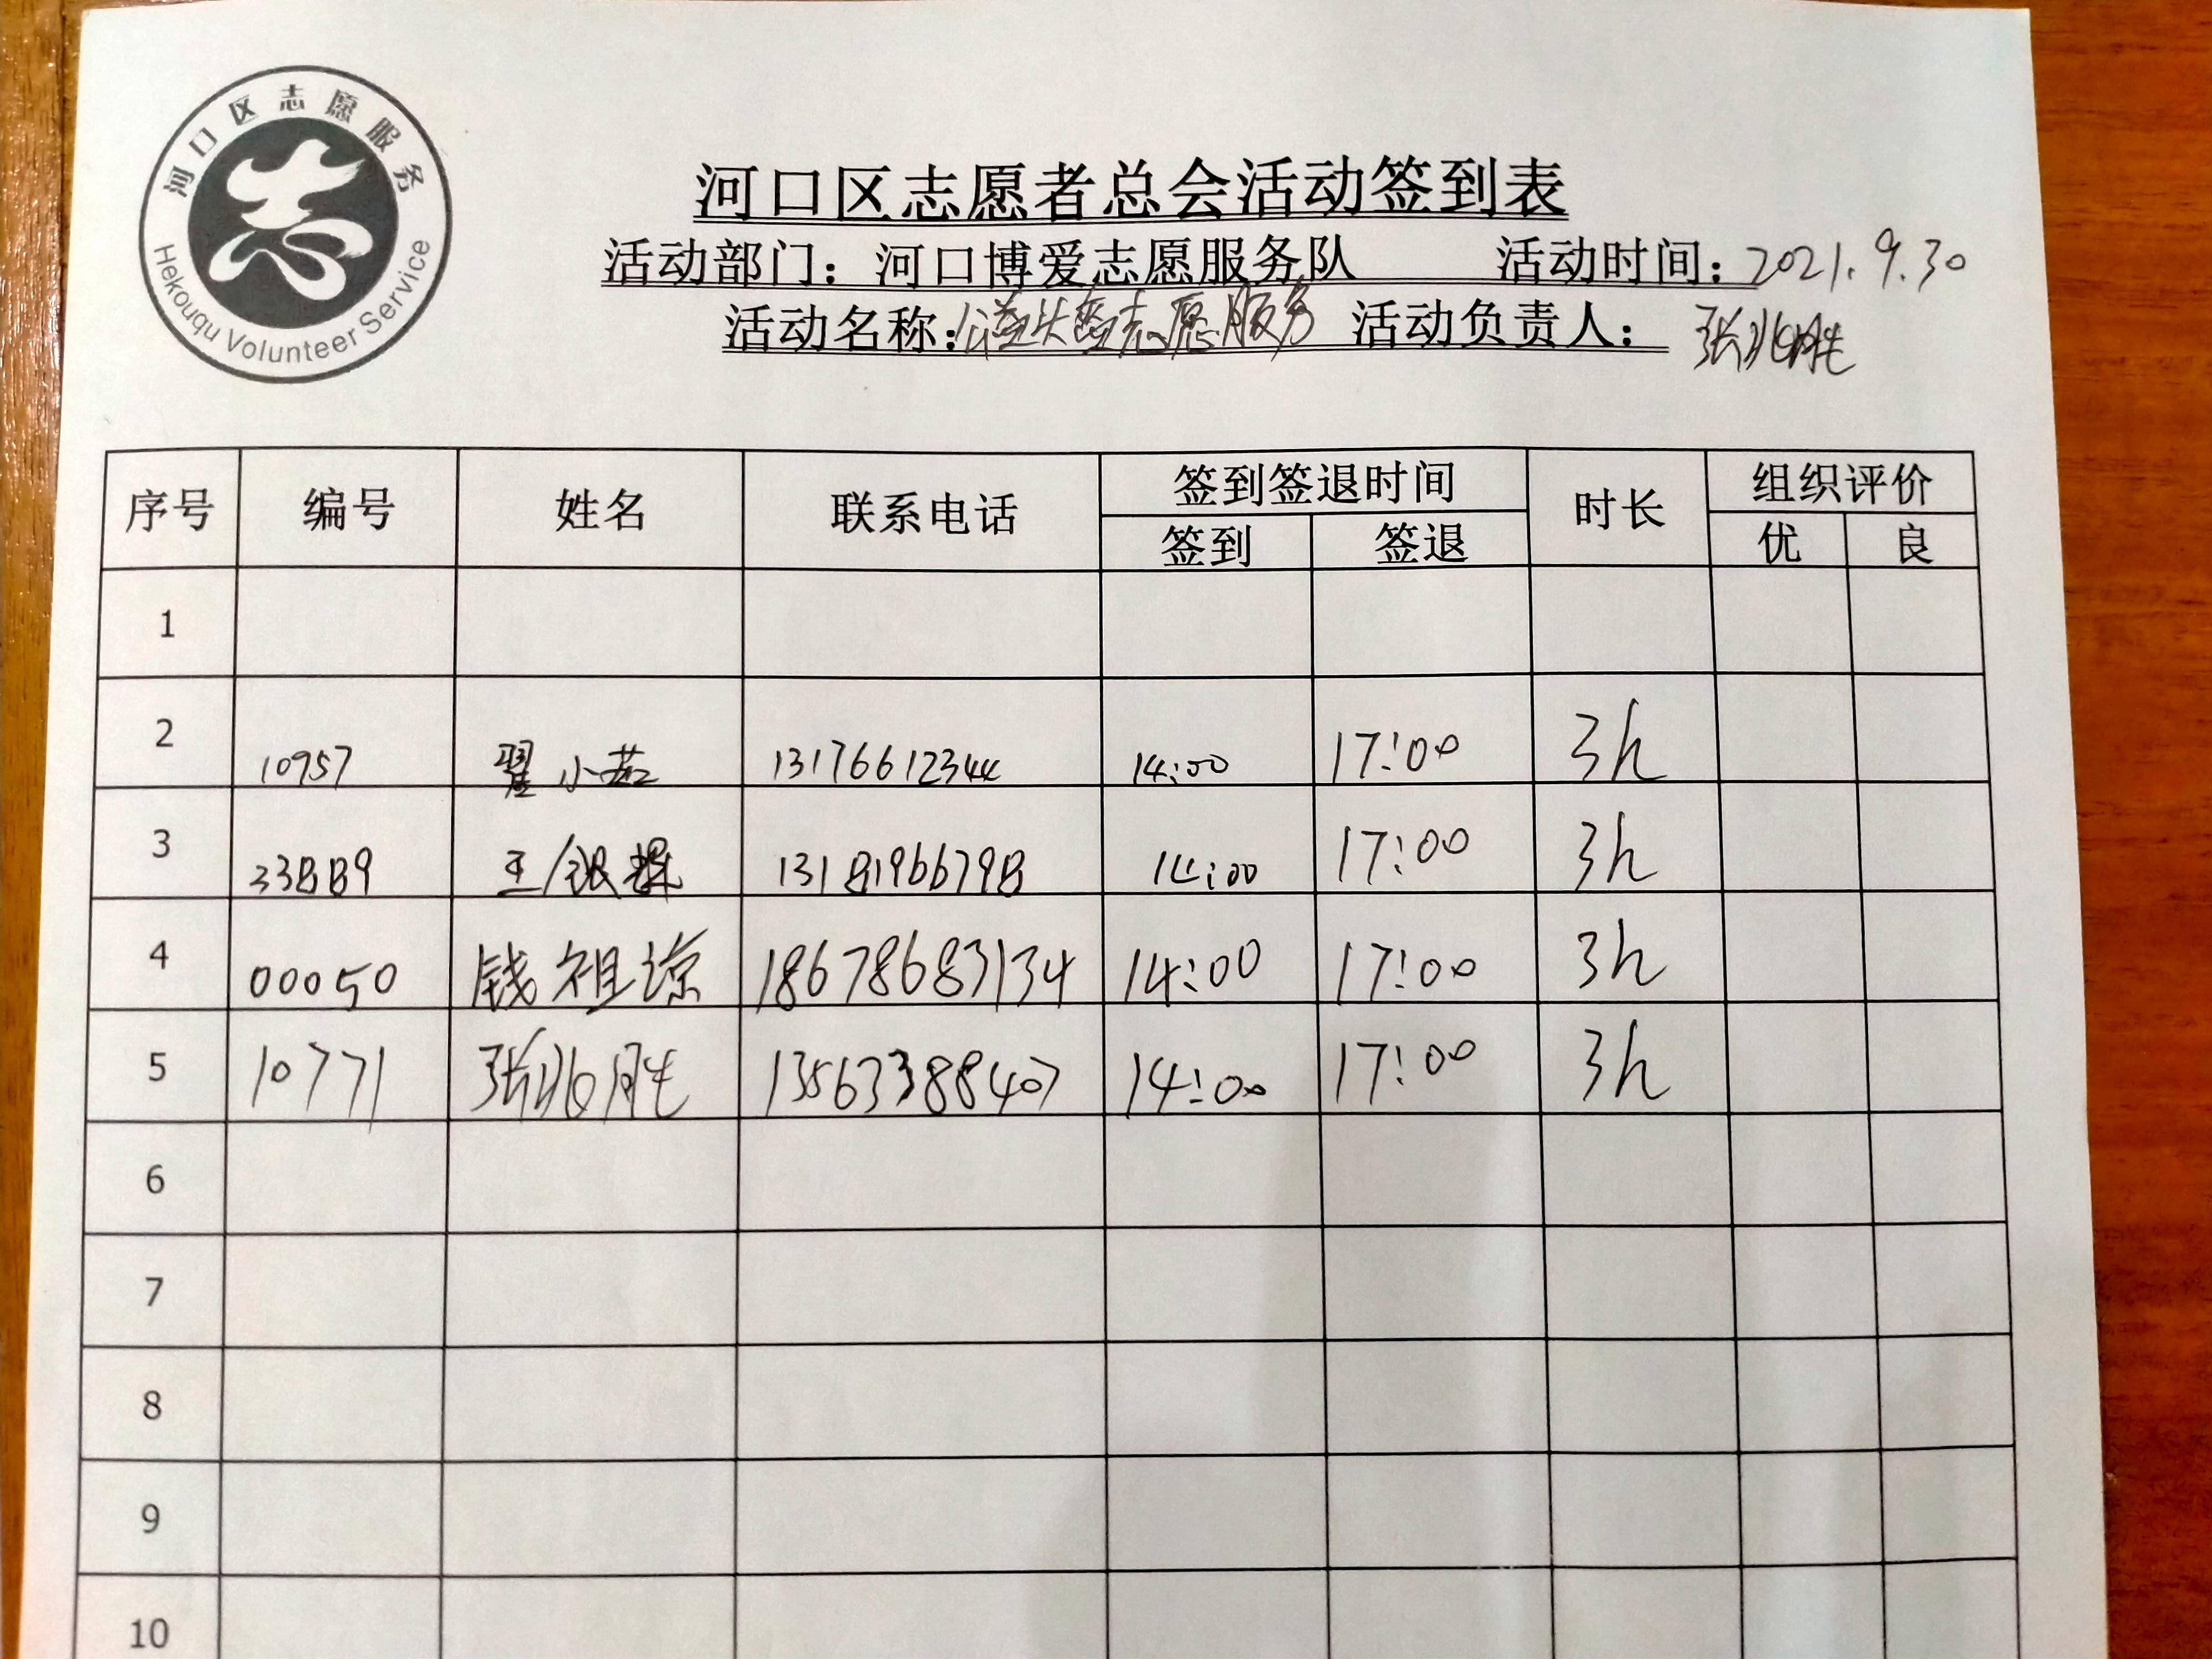 河口区志愿服务
Hekouqu Volunteer Service
河口区志愿者总会活动签到表
活动部门：河口博爱志愿服务队 活动时间：2021.9.30
活动名称：公益大集志愿服务 活动负责人：张兆胜
序号 编号 姓名 联系电话 签到签退时间 时长 组织评价
签到 签退 优 良
1
2 10957 翟小茹 13176612344 14:00 17:00 3h
3 33889 王银 13181966798 14:00 17:00 3h
4 00050 钱祖谅 18678683134 14:00 17:00 3h
5 10771 张兆胜 13563388407 14:00 17:00 3h
6
7
8
9
10